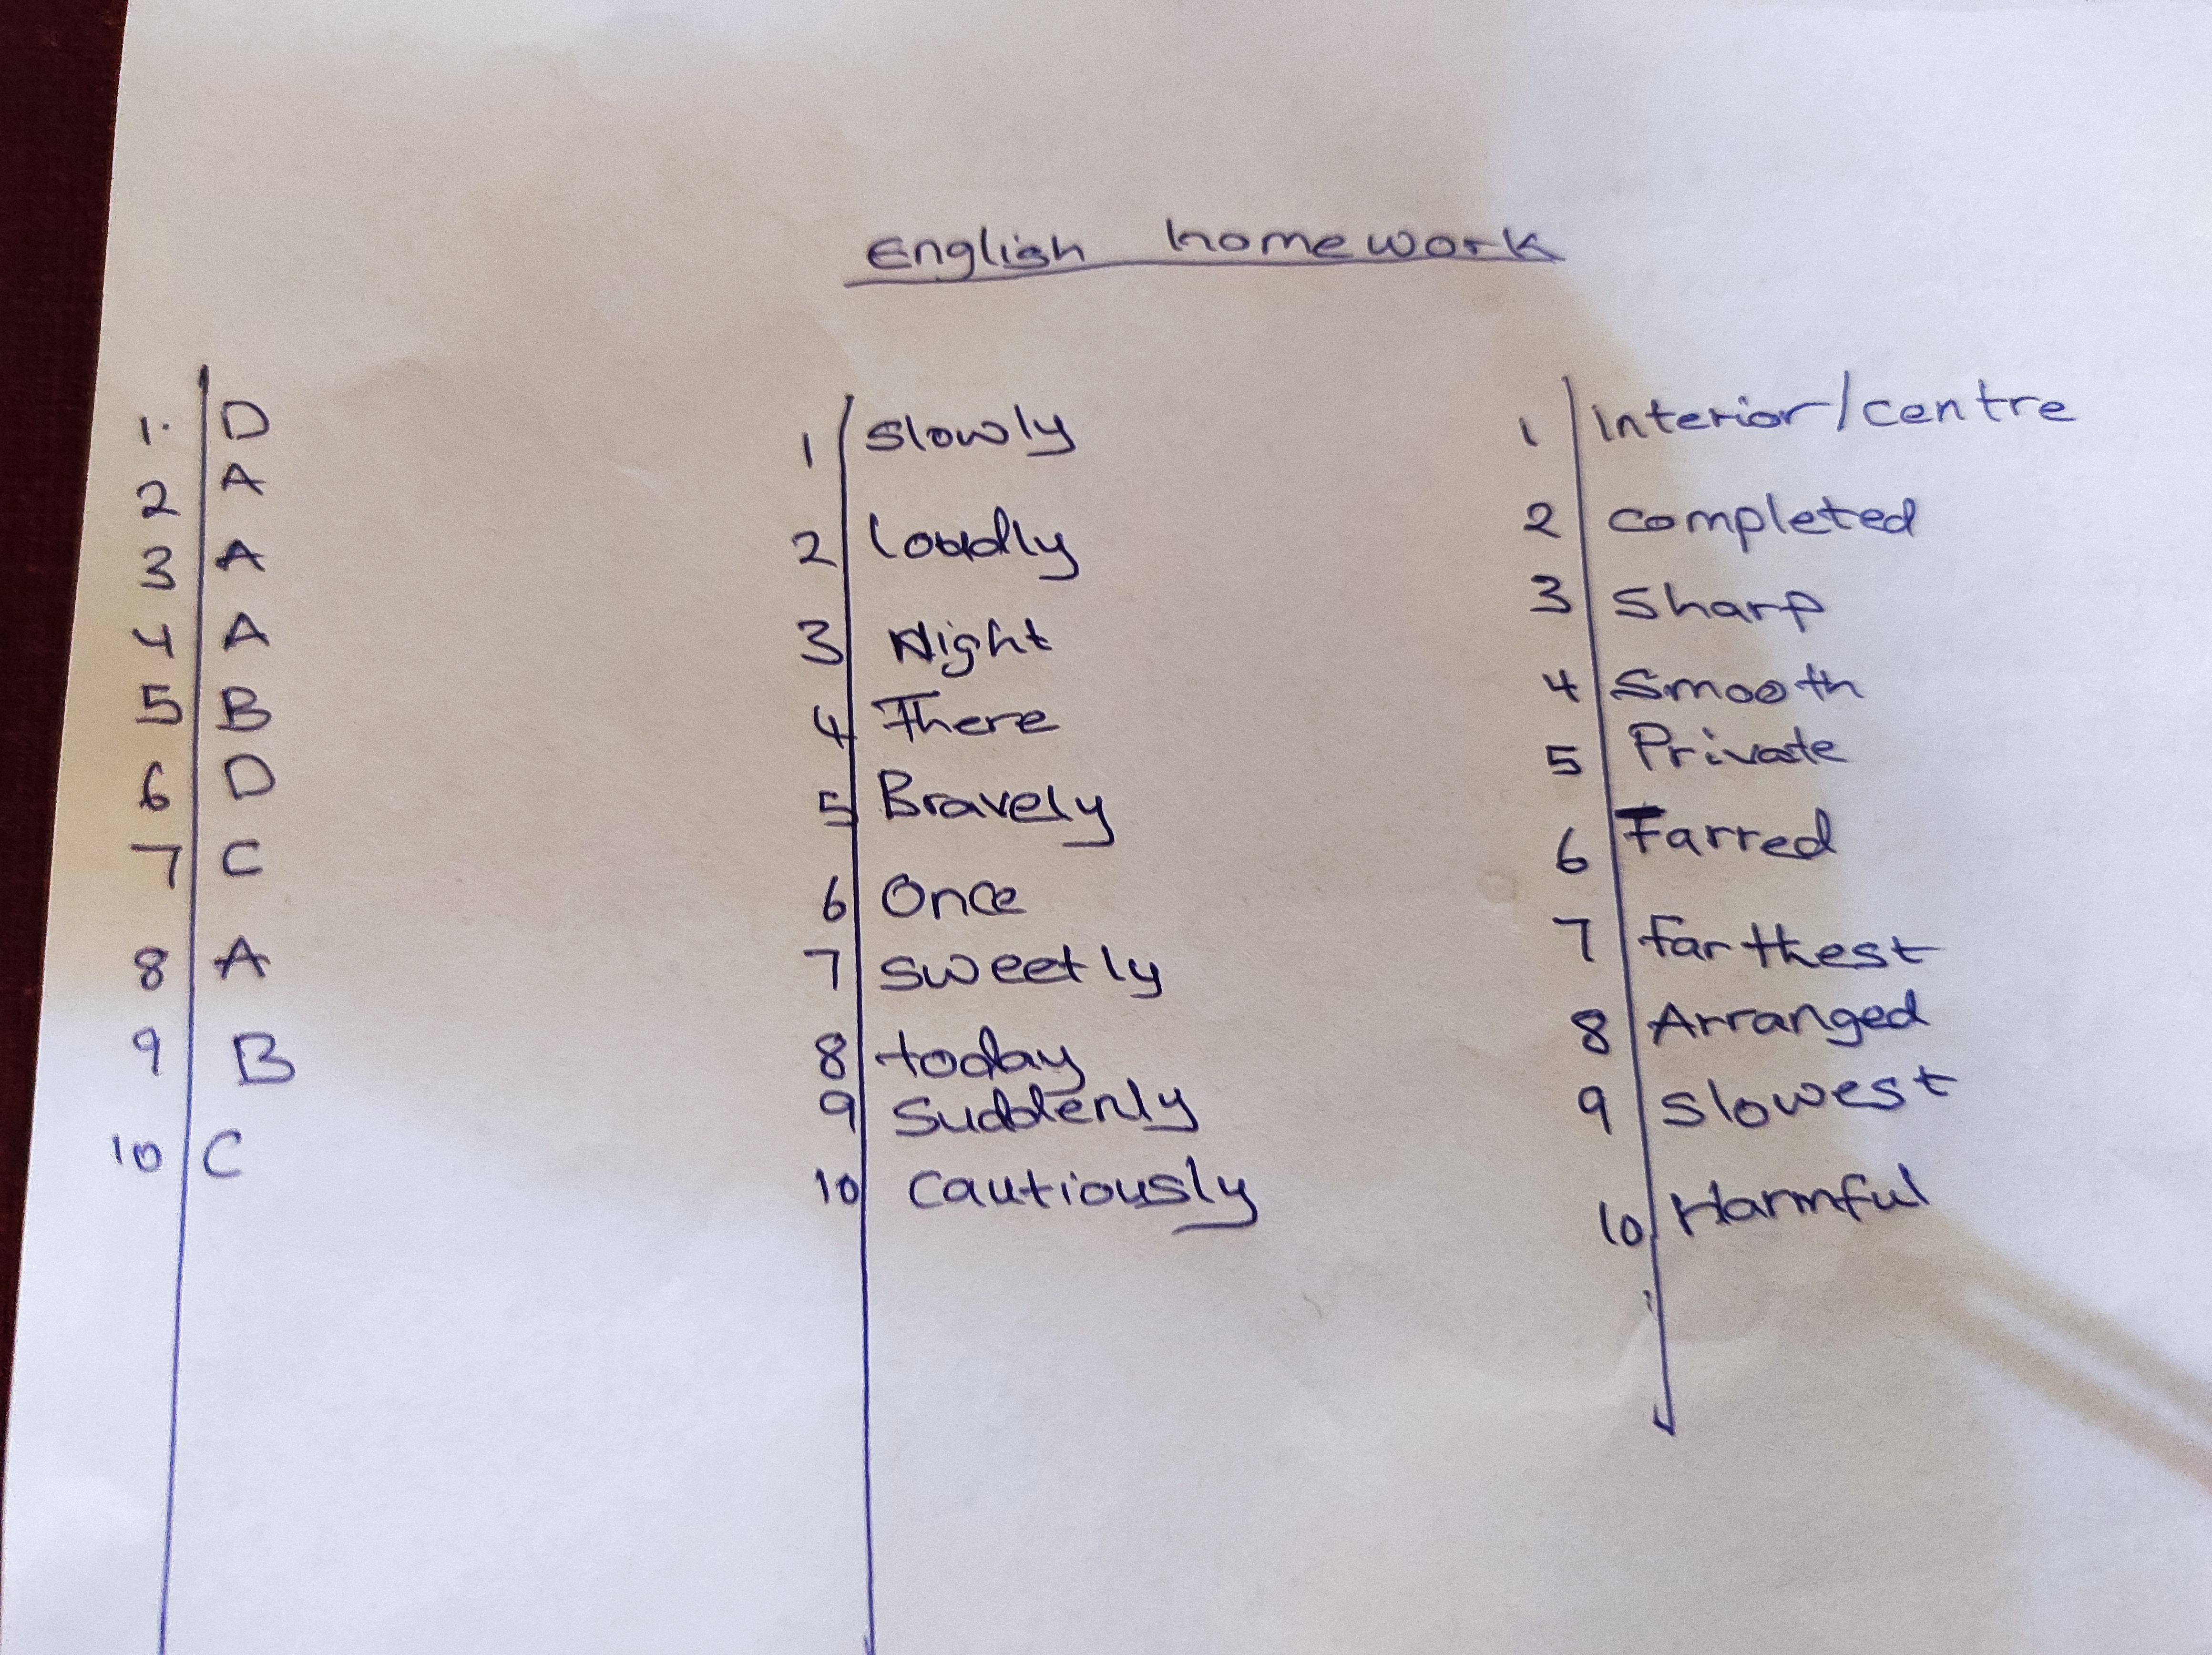 English homework
1. D
2 A
3 A
4 A
5 B
6 D
7 C
8 A
9 B
10 C
1 slowly
2 loudly
3 Night
4 There
5 Bravely
6 Once
7 sweetly
8 today
9 Suddenly
10 cautiously
1 Interior/centre
2 completed
3 Sharp
4 Smooth
5 Private
6 Farred
7 farthest
8 Arranged
9 slowest
10 Harmful